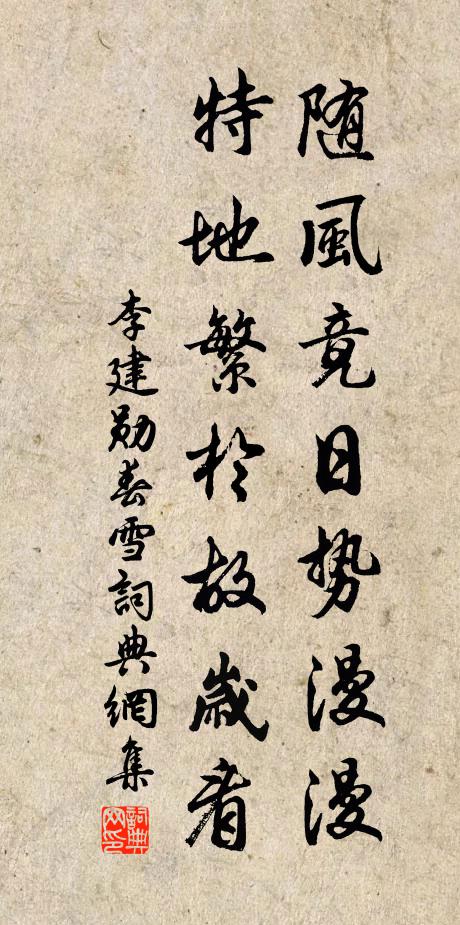 随風竟日势漫漫
特地繁於故歲看
李建勋春雪詞典網集
詞典网印